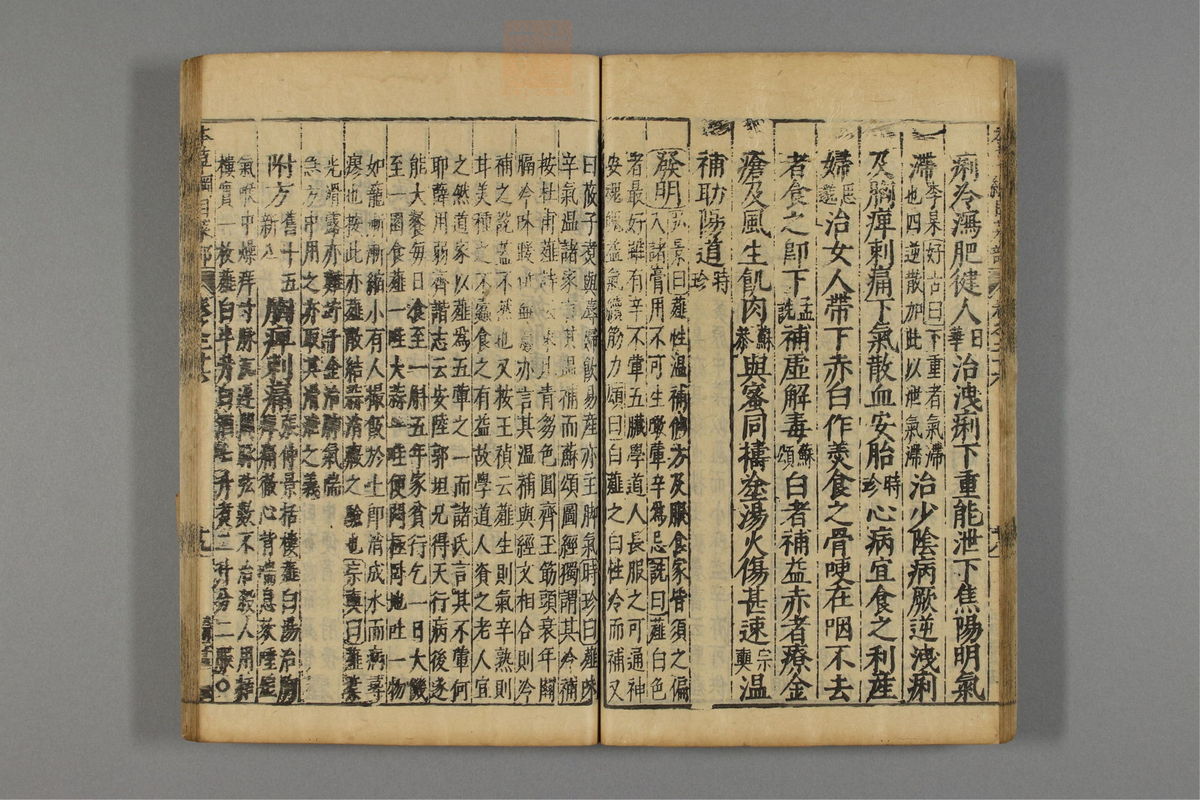 痢冷瀉肥健人日華治洩痢下重能泄下焦陽明氣
滯李杲好古曰下重者氣滯也四逆散加此以泄氣滯治少陰病厥逆洩痢
及胸痺刺痛下氣散血安胎時珍心病宜食之利產
婦思邈治女人帶下赤白作羹食之骨哽在咽不去
者食之即下孟詵補虛解毒蘇頌白者補益赤者療金
瘡及風生肌肉蘇恭與蜜同擣塗湯火傷甚速宗奭溫
補助陽道時珍
發明弘景曰薤性溫補仙方及服食家皆須之偏
入諸膏用不可生噉葷辛爲忌詵曰薤白色
者最好雖有辛不葷五臟學道人長服之可通神
安魂魄益氣續筋力頌曰白薤之白性冷而補又
曰莜子煮與蓐婦飲易產亦主脚氣時珍曰薤味
辛氣溫諸家言其溫補而蘇頌圖經獨謂其冷補
按杜甫薤詩云束比青芻色圓齊玉筯頭衰年關
膈冷味暖併無憂亦言其溫補與經文相合則冷
補之說蓋不然也又按王禎云薤生則氣辛熟則
甘美種之不蠹食之有益故學道人資之老人宜
之然道家以薤爲五葷之一而諸氏言其不葷何
耶薛用弱齊諧志云安陸郭坦兄得天行病後遂
能大餐每日食至一斛五年家貧行乞一日大饑
至一園食薤一畦大蒜一畦便悶極卧地吐一物
如龍漸漸縮小有人撮飯於上即消成水而病尋
瘳也按此亦薤散結蒜消癥之驗也宗奭曰薤葉
光滑露亦難竚千金治肺氣喘
急方中用之亦取其滑泄之義
附方舊十五新八胸痺刺痛張仲景栝樓薤白湯治胸
痺痛徹心背喘息欬唾短
氣喉中燥痒寸脉沉遲關脉弦數不治殺人用栝
樓實一枚薤白半升白酒七升煮二升分二服○